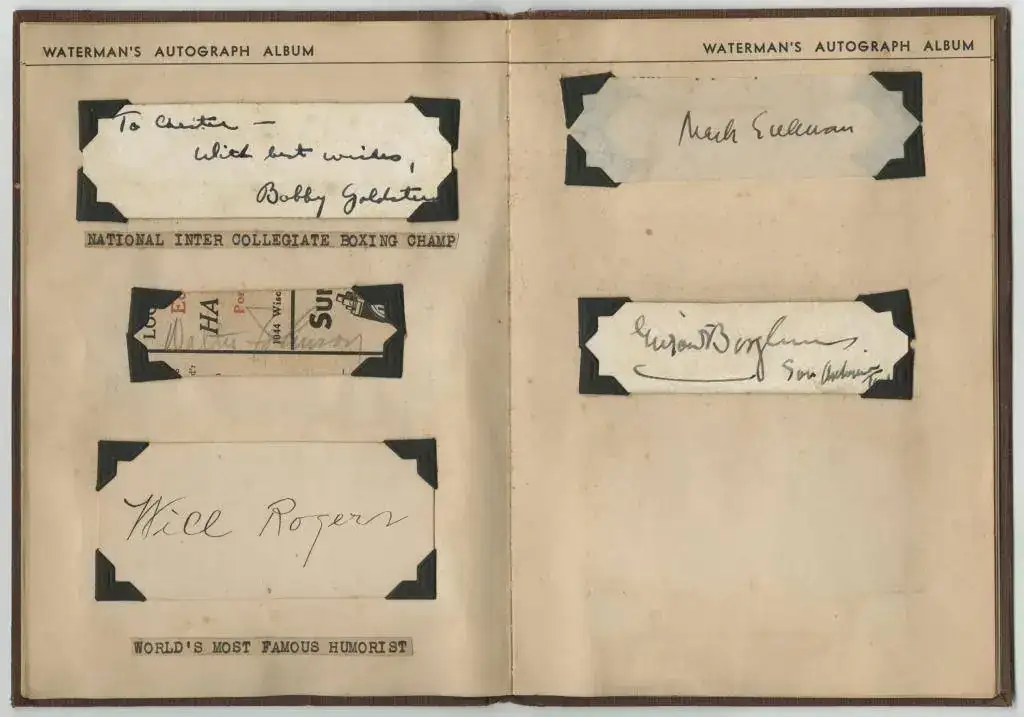 WATERMAN'S AUTOGRAPH ALBUM
To Chester —
With best wishes,
Bobby Goldstein
NATIONAL INTER COLLEGIATE BOXING CHAMP
LOO
HA
Por
1944 Wisc
SUP
Walter Johnson
Will Rogers
WORLD'S MOST FAMOUS HUMORIST
WATERMAN'S AUTOGRAPH ALBUM
Mack
Gutzon Borglum
San Antonio